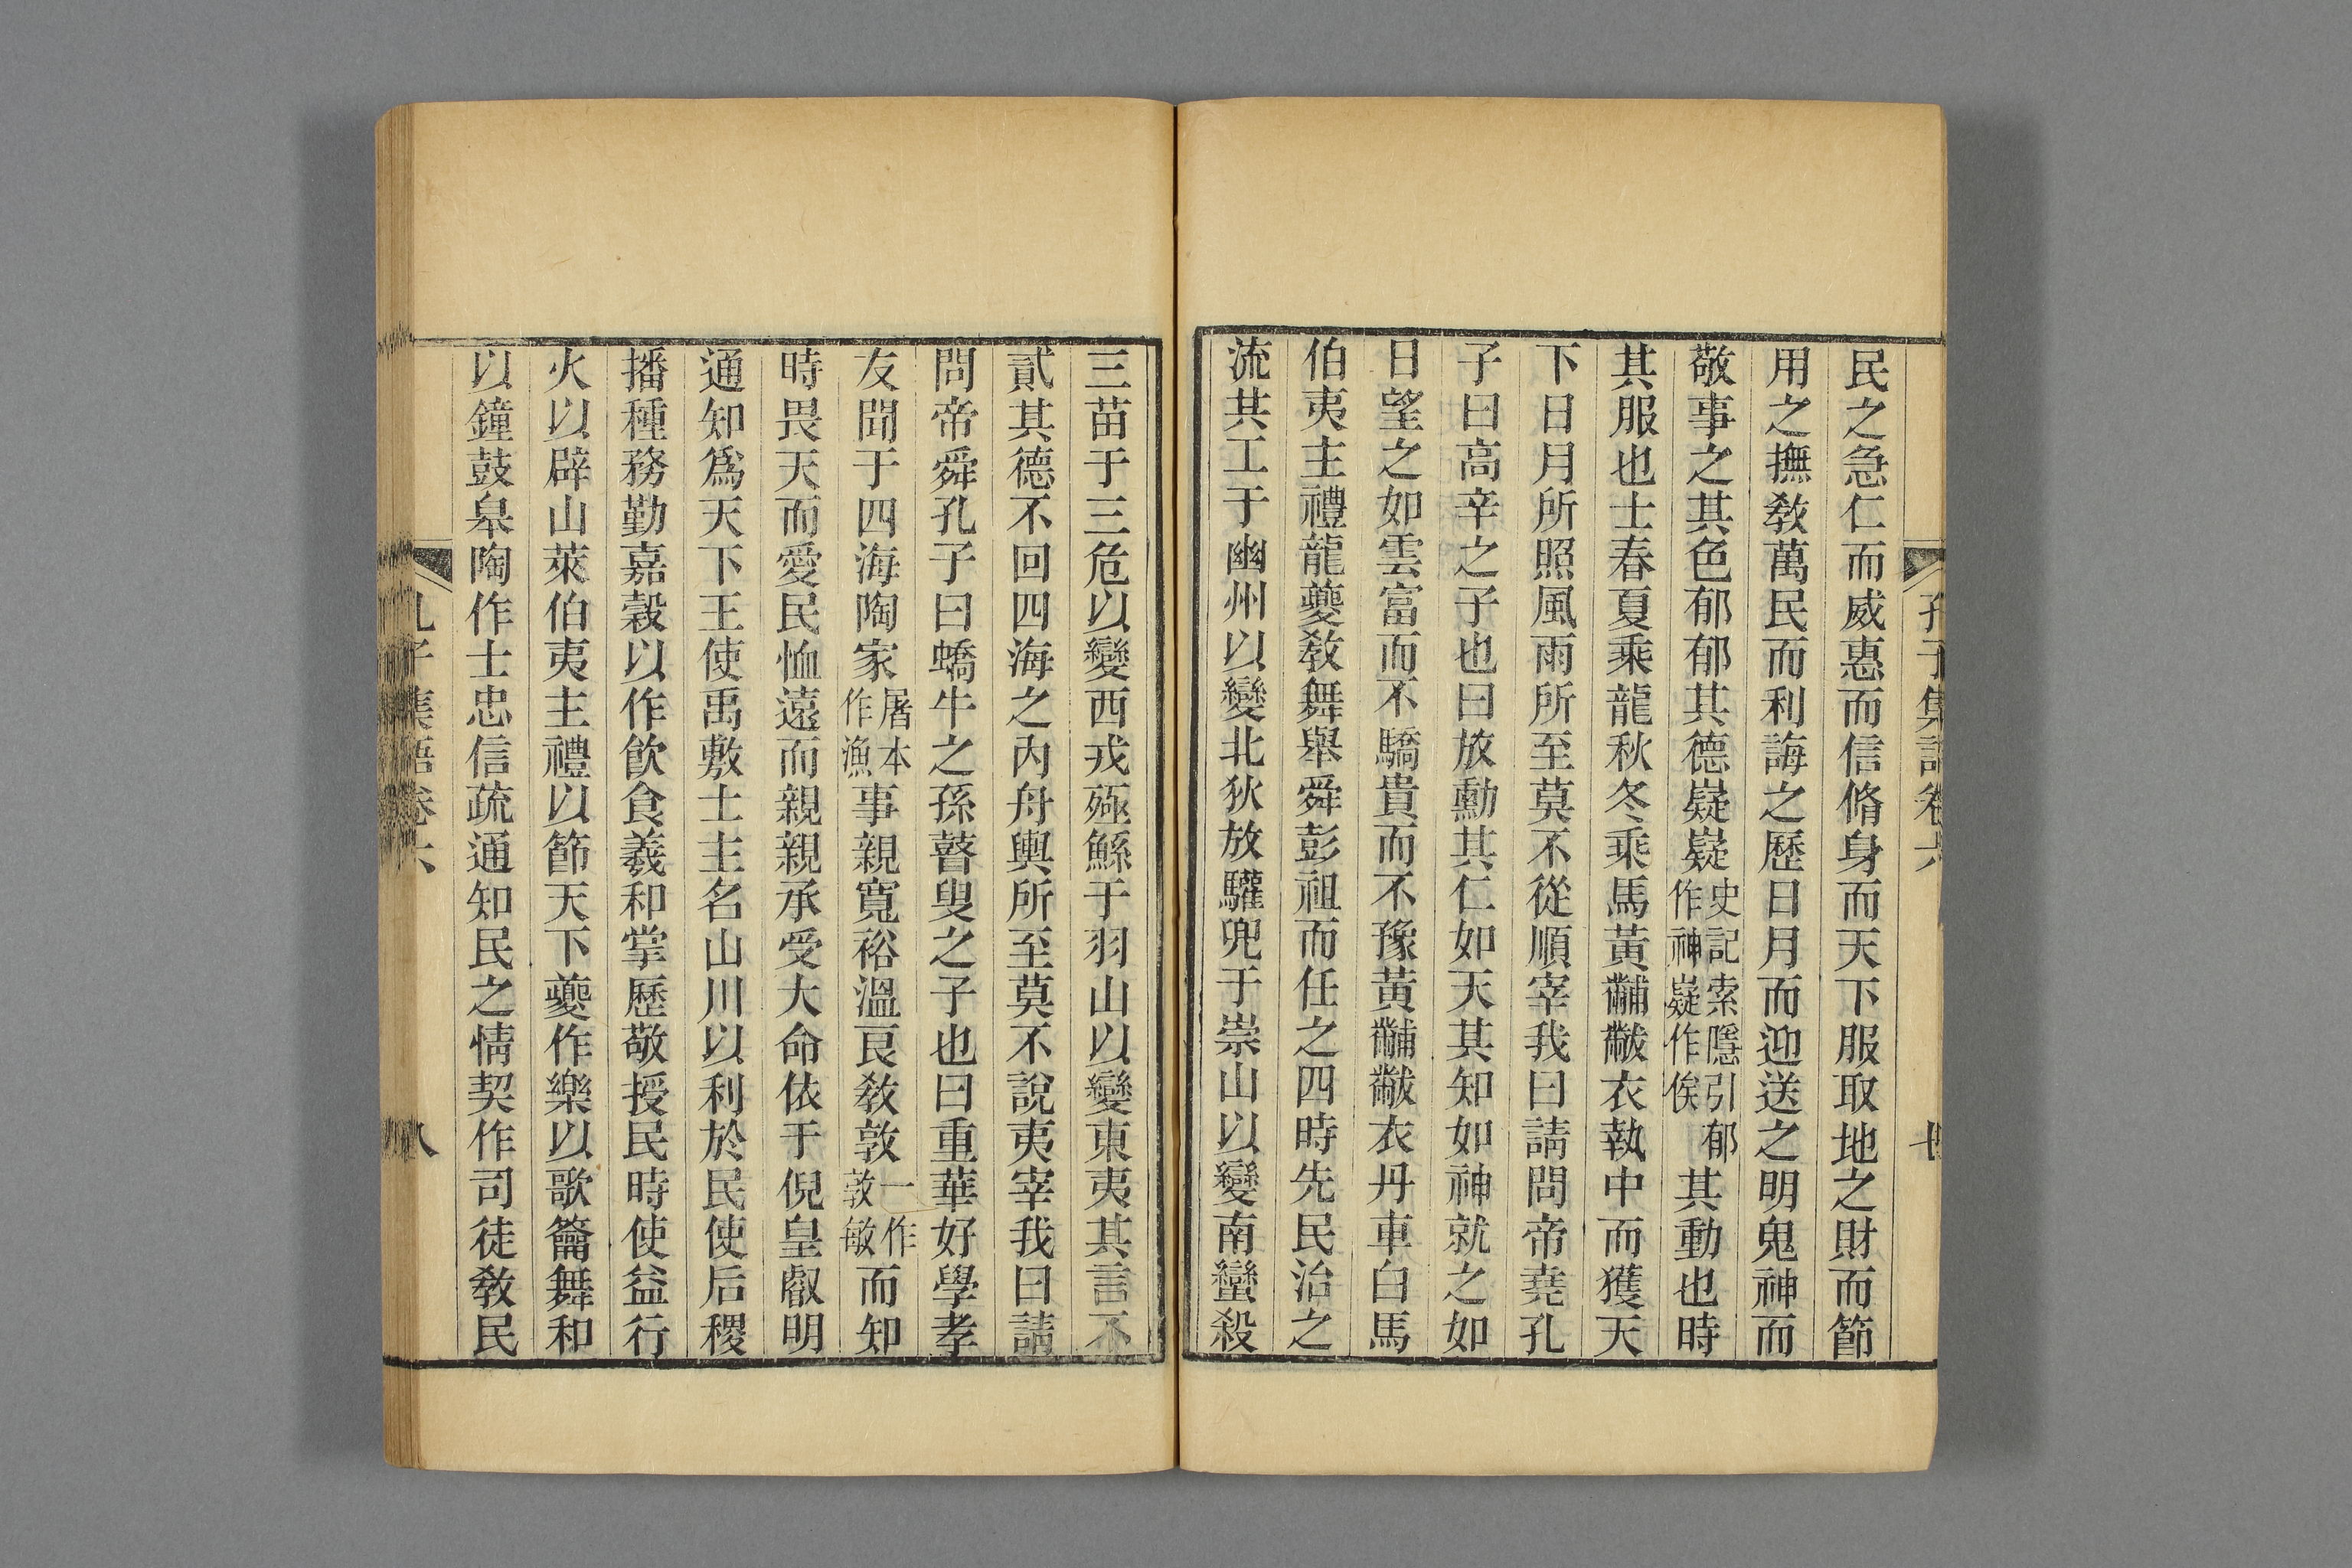 孔子集語卷六
民之急仁而威惠而信脩身而天下服取地之財而節
用之撫敎萬民而利誨之歷日月而迎送之明鬼神而
敬事之其色郁郁其德嶷嶷史記索隱引郁作神嶷作俟其動也時
其服也士春夏乘龍秋冬乘馬黃黼黻衣執中而獲天
下日月所照風雨所至莫不從順宰我曰請問帝堯孔
子曰高辛之子也曰放勳其仁如天其知如神就之如
日望之如雲富而不驕貴而不豫黃黼黻衣丹車白馬
伯夷主禮龍夔敎舞舉舜彭祖而任之四時先民治之
流共工于幽州以變北狄放驩兜于崇山以變南蠻殺
三苗于三危以變西戎殛鯀于羽山以變東夷其言不
貳其德不回四海之內舟輿所至莫不說夷宰我曰請
問帝舜孔子曰蟜牛之孫瞽叟之子也曰重華好學孝
友聞于四海陶家屠本作漁事親寬裕溫良敎敦一作敦敏而知
時畏天而愛民恤遠而親親承受大命依于倪皇叡明
通知爲天下王使禹敷土主名山川以利於民使后稷
播種務勤嘉穀以作飮食羲和掌歷敬授民時使益行
火以辟山萊伯夷主禮以節天下夔作樂以歌籥舞和
以鐘鼓皋陶作士忠信疏通知民之情契作司徒敎民
孔子集語卷六
八